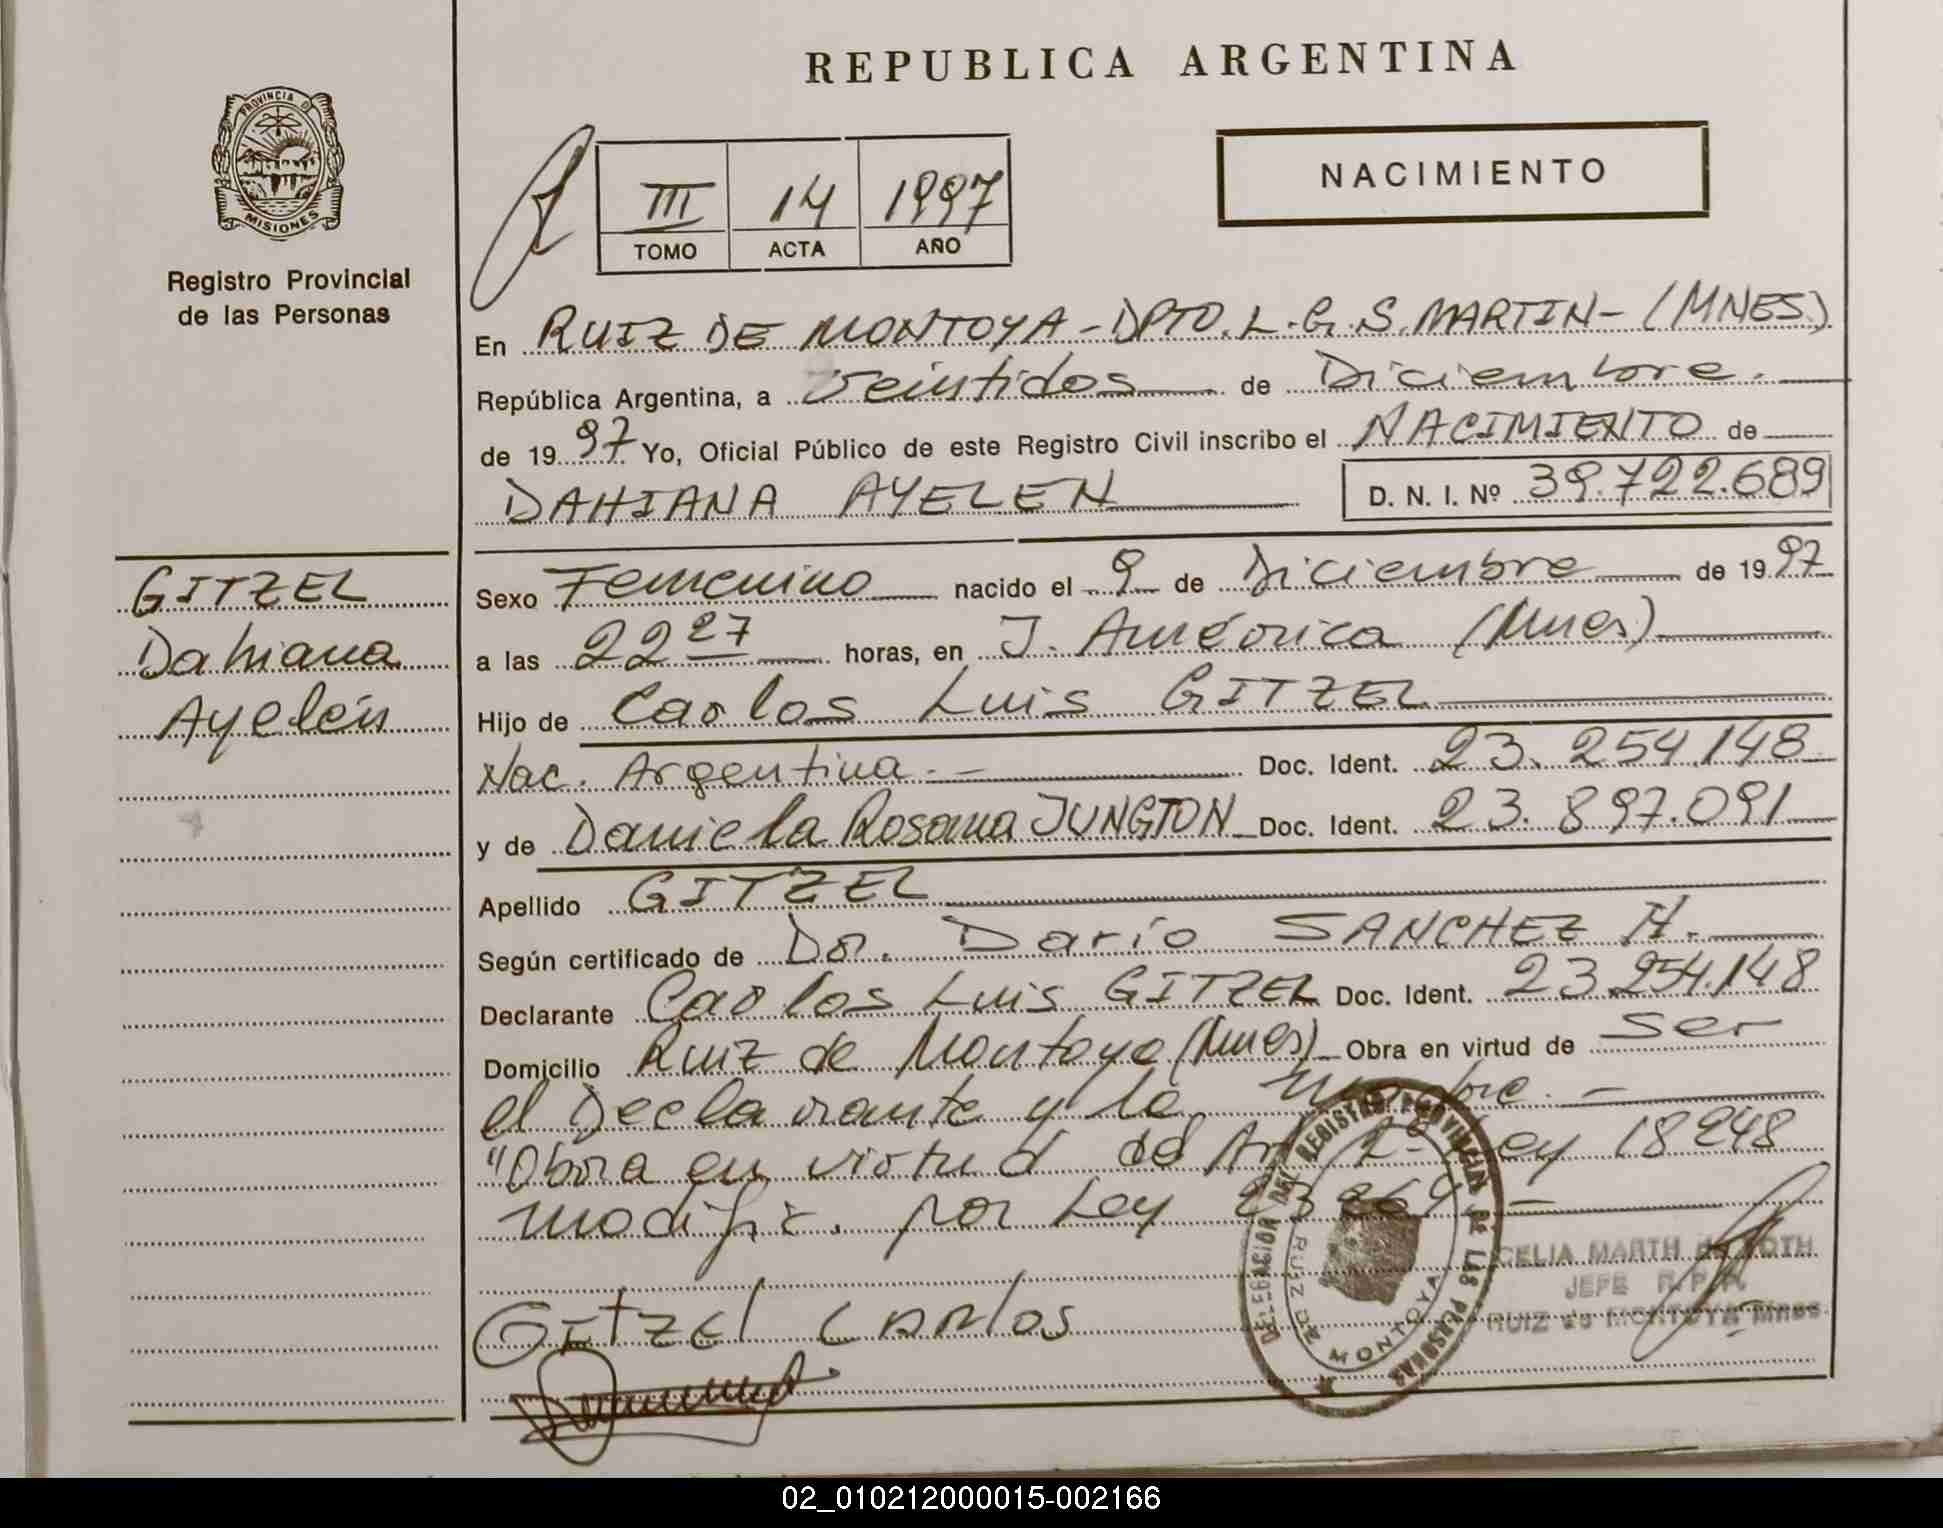 REPUBLICA ARGENTINA
PROVINCIA D
MISIONES
Registro Provincial
de las Personas
III 14 1997
TOMO ACTA AÑO
NACIMIENTO
En RUIZ DE MONTOYA - DPTO. L. G. S. MARTIN - (MNES)
República Argentina, a veintidos de Diciembre.
de 1997 Yo, Oficial Público de este Registro Civil inscribo el NACIMIENTO de
DAHIANA AYELEN D. N. I. Nº 39.722.689
GITZEL
Dahiana
Ayelén
Sexo Femenino nacido el 9 de Diciembre de 1997
a las 22 27 horas, en J. América (Mnes)
Hijo de Carlos Luis GITZEL
Nac. Argentina.- Doc. Ident. 23.254.148
y de Daniela Rosana JUNGTON Doc. Ident. 23.897.091
Apellido GITZEL
Según certificado de Dr. Darío SANCHEZ H.
Declarante Carlos Luis GITZEL Doc. Ident. 23.254.148
Domicilio Ruiz de Montoya (Mnes) Obra en virtud de ser
el Declarante y la madre.-
"Obra en virtud del Art 2- Ley 18248
modific. por Ley 23264 -
DELEGACION DEL REGISTRO PROVINCIAL DE LAS PERSONAS
RUIZ DE MONTOYA
CELIA MARTH de ROTH
JEFE R.P.P.
RUIZ de MONTOYA Mnes.
GitzEl CARlos
02_010212000015-002166